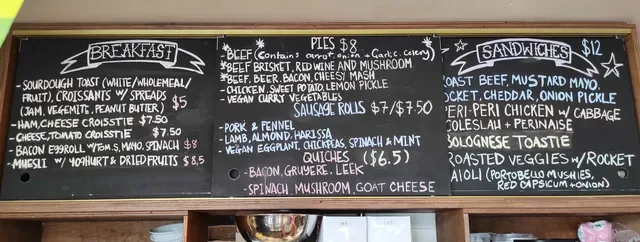 BREAKFAST
- SOURDOUGH TOAST (WHITE/WHOLEMEAL/
FRUIT), CROISSANTS W/ SPREADS
(JAM, VEGEMITE, PEANUT BUTTER) $5
- HAM, CHEESE CROISSTIE $7.50
CHEESE, TOMATO CROISSTIE $7.50
- BACON EGGROLL W/TOM.S, MAYO, SPINACH $8
- MUESLI W/ YOGHURT & DRIED FRUITS $8,5
PIES $8
BEEF (Contains carrot, onion + Garlic. Celery)
BEEF BRISKET, RED WINE AND MUSHROOM
BEEF. BEER. BACON, CHEESY MASH
- CHICKEN. SWEET POTATO. LEMON PICKLE
- VEGAN CURRY VEGETABLES
SAUSAGE ROLLS $7/$7.50
- PORK & FENNEL
LAMB, ALMOND, HARISSA
- VEGAN EGGPLANT, CHICKPEAS, SPINACH & MINT
QUICHES ($6.5)
- BACON, GRUYERE. LEEK
- SPINACH MUSHROOM, GOAT CHEESE
SANDWICHES $12
OAST BEEF, MUSTARD MAYO.
OCKET, CHEDDAR, ONION PICKLE
ERI-PERI CHICKEN W/ CABBAGE
COLESLAW + PERINAISE
BOLOGNESE TOASTIE
ROASTED VEGGIES W/ROCKET
AIOLI (PORTOBELLO MUSHIES,
RED CAPSICUM + ONION)